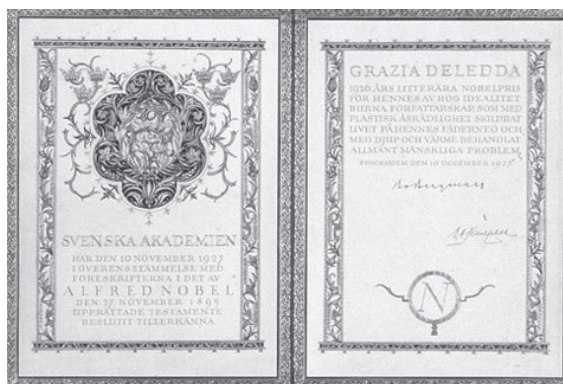 SVENSKA AKADEMIEN
HAR DEN 10 NOVEMBER 1927
I ÖVERENSSTÄMMELSE MED
FÖRESKRIFTERNA I DET AV
ALFRED NOBEL
DEN 27 NOVEMBER 1895
UPPRÄTTADE TESTAMENTE
BESLUTIT TILLERKÄNNA
GRAZIA DELEDDA
1926 ÅRS LITTERÄRA NOBELPRIS
FÖR HENNES AV HÖG IDEALITET
BURNA FÖRFATTARSKAP, SOM MED
PLASTISK ÅSKÅDLIGHET SKILDRAT
LIVET PÅ HENNES FÄDERNEÖ OCH
MED DJUP OCH VÄRME BEHANDLAT
ALLMÄNT MÄNSKLIGA PROBLEM
STOCKHOLM DEN 10 DECEMBER 1927
N